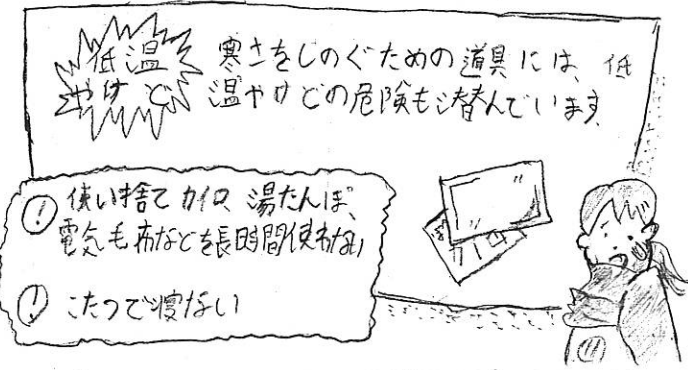 低温
やけど
寒さをしのぐための道具には、低
温やけどの危険も潜んでいます。
! 使い捨てカイロ、湯たんぽ、
電気毛布などを長時間使わない
! こたつで寝ない
カイロ